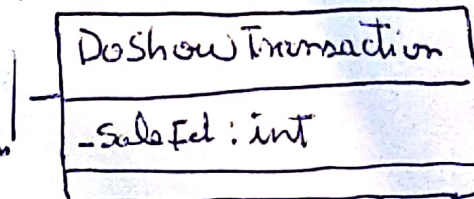 DoShowTransaction
-SaleId : int